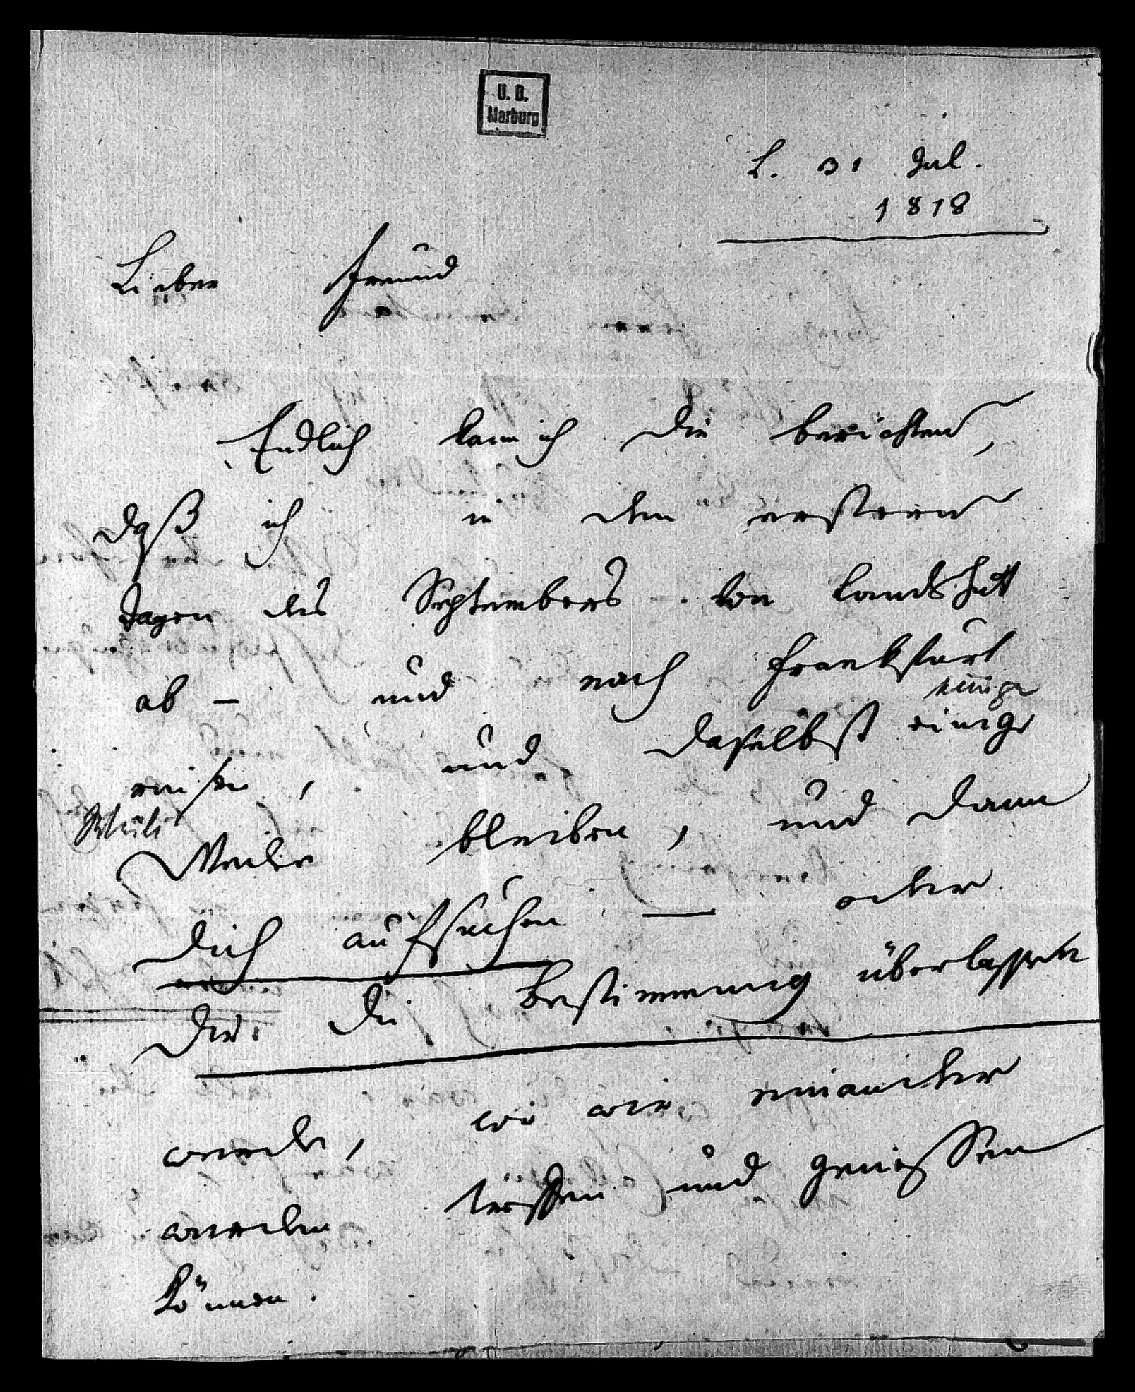 U. B.
Marburg
L. 31 Jul.
1818
Lieber Freund
Endlich kann ich dir berichten,
daß ich in den ersteren
Tagen des Septembers von Landshutt
ab – und nach Frankfurt
einige
reisen, und daselbst einige
Weile
Weile bleiben, und dann
dich aufsuchen — oder
Dir die Bestimmung überlassen
werde, wo wir einander
werden treffen und geniessen
können.